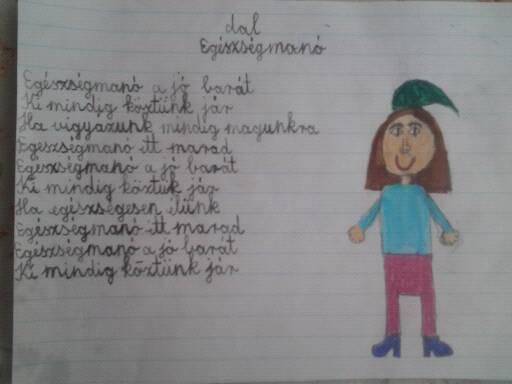 dal
Egészségmanó
Egészségmanó a jó barát
Ki mindig köztünk jár
Ha vigyazunk mindig magunkra
Egészségmanó itt marad
Egészségmanó a jó barát
Ki mindig köztük jár
Ha egészségesen élünk
Egészségmanó itt marad
Egészségmanó a jó barát
Ki mindig köztünk jár